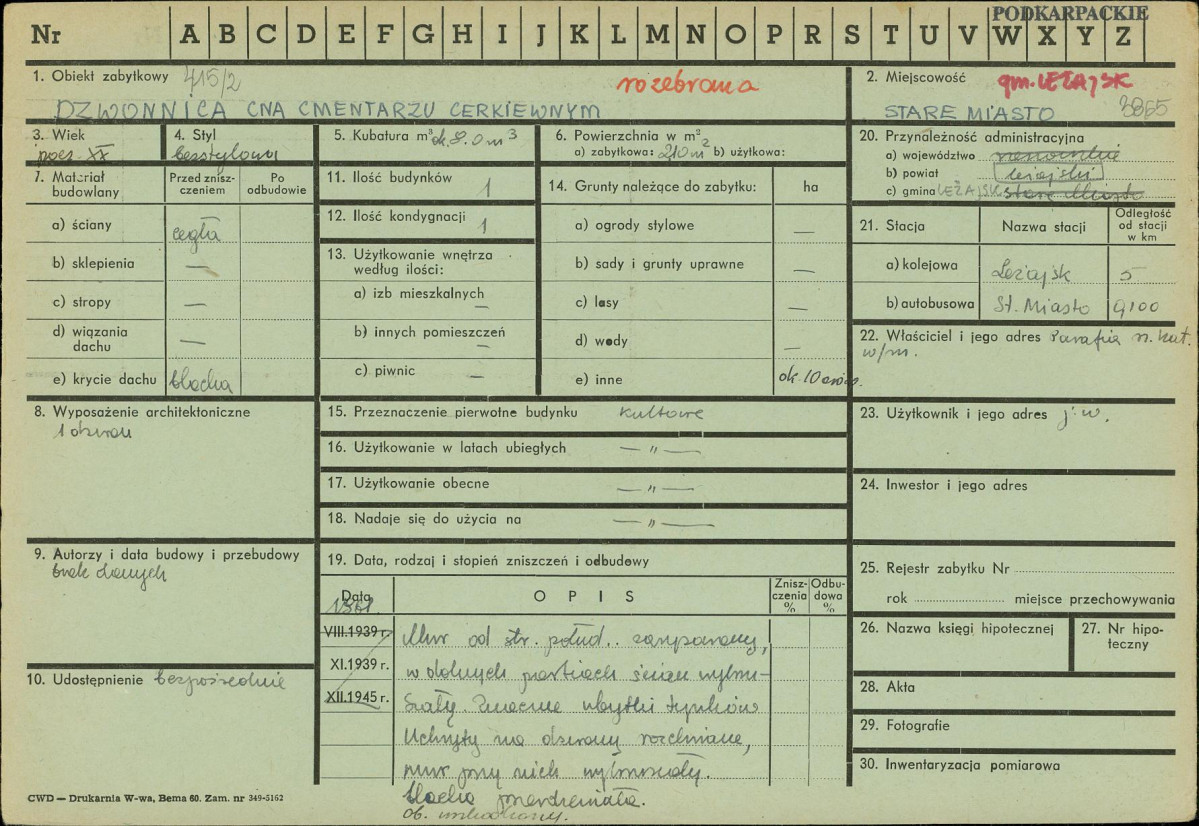 PODKARPACKIE
Nr A B C D E F G H I J K L M N O P R S T U V W X Y Z
1. Obiekt zabytkowy 415/2
rozebrana
DZWONNICA CNA CMENTARZU CERKIEWNYM
2. Miejscowość gm. LEŻAJSK
STARE MIASTO 3865
3. Wiek
pocz. XX
4. Styl
bezstylowa
5. Kubatura m³ ok. 80 m³
6. Powierzchnia w m²
a) zabytkowa: 210 m² b) użytkowa:
20. Przynależność administracyjna
a) województwo rzeszowskie
b) powiat leżajski
c) gmina LEŻAJSK Stare Miasto
7. Materiał budowlany
Przed zniszczeniem
Po odbudowie
a) ściany cegła
b) sklepienia —
c) stropy —
d) wiązania dachu —
e) krycie dachu blacha
11. Ilość budynków 1
12. Ilość kondygnacji 1
13. Użytkowanie wnętrza według ilości:
a) izb mieszkalnych —
b) innych pomieszczeń —
c) piwnic —
14. Grunty należące do zabytku: ha
a) ogrody stylowe —
b) sady i grunty uprawne —
c) lasy —
d) wody —
e) inne ok. 10 arów
21. Stacja Nazwa stacji Odległość od stacji w km
a) kolejowa Leżajsk 5
b) autobusowa St. Miasto 0,100
22. Właściciel i jego adres Parafia rz. kat.
w/m.
8. Wyposażenie architektoniczne
1 dzwon
15. Przeznaczenie pierwotne budynku kultowe
16. Użytkowanie w latach ubiegłych — " —
17. Użytkowanie obecne — " —
18. Nadaje się do użycia na — " —
23. Użytkownik i jego adres j. w.
24. Inwestor i jego adres
9. Autorzy i data budowy i przebudowy
brak danych
10. Udostępnienie bezpośrednie
19. Data, rodzaj i stopień zniszczeń i odbudowy
Data OPIS Zniszczenia % Odbudowa %
VIII.1939 r. Mur od str. połud. zarysowany,
XI.1939 r. w dolnych partiach ścian wykru-
XII.1945 r. szały. Znaczne ubytki tynków
Uchwyty na dzwony rozchwiane,
mur przy nich wykruszały.
blacha przerdzewiała.
25. Rejestr zabytku Nr
rok miejsce przechowywania
26. Nazwa księgi hipotecznej
27. Nr hipoteczny
28. Akta
29. Fotografie
30. Inwentaryzacja pomiarowa
CWD — Drukarnia W-wa, Bema 60. Zam. nr 349-5162